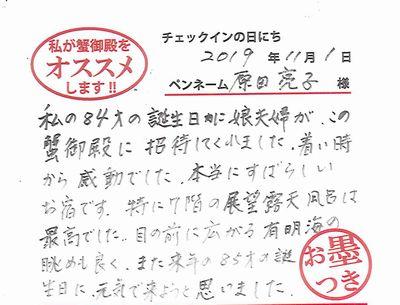 私が蟹御殿を
オススメ
します!!
チェックインの日にち
2019年11月1日
ペンネーム 原田亮子 様
私の84才の誕生日に娘夫婦が、この
蟹御殿に招待してくれました。着い時
から感動でした。本当にすばらしい
お宿です。特に7階の展望露天風呂は
最高でした。目の前に広がる有明海の
眺めも良く、また来年の85才の誕
生日に、元気で来ようと思いました。
お墨
つき